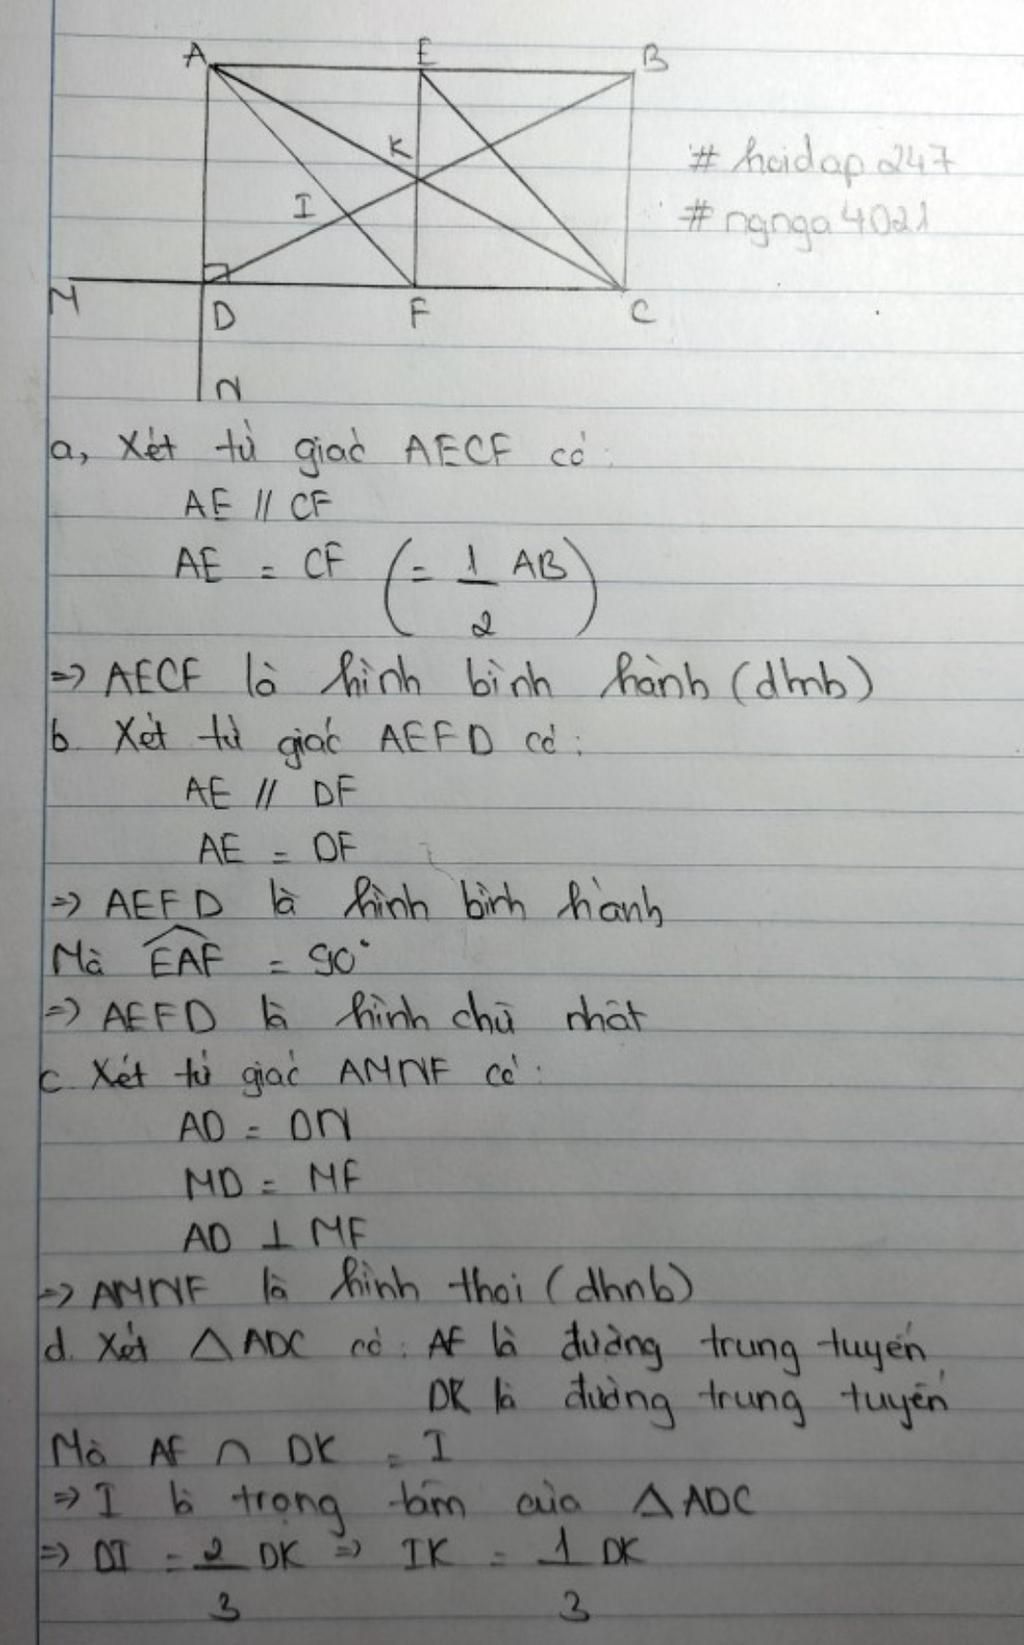 A E B
K
I
M D F C
N
# hoidap 247
# ngnga 4021
a, Xét tứ giác AECF có:
AE // CF
AE = CF (= 1/2 AB)
=> AECF là hình bình hành (dhnb)
b. Xét tứ giác AEFD có:
AE // DF
AE = DF
=> AEFD là hình bình hành
Mà EAF = 90°
=> AEFD là hình chữ nhật
c. Xét tứ giác AMNF có:
AD = DN
MD = MF
AD ⊥ MF
=> AMNF là hình thoi (dhnb)
d. Xét △ADC có: AF là đường trung tuyến
DK là đường trung tuyến
Mà AF ∩ DK = I
=> I là trọng tâm của △ADC
=> DI = 2/3 DK => IK = 1/3 DK